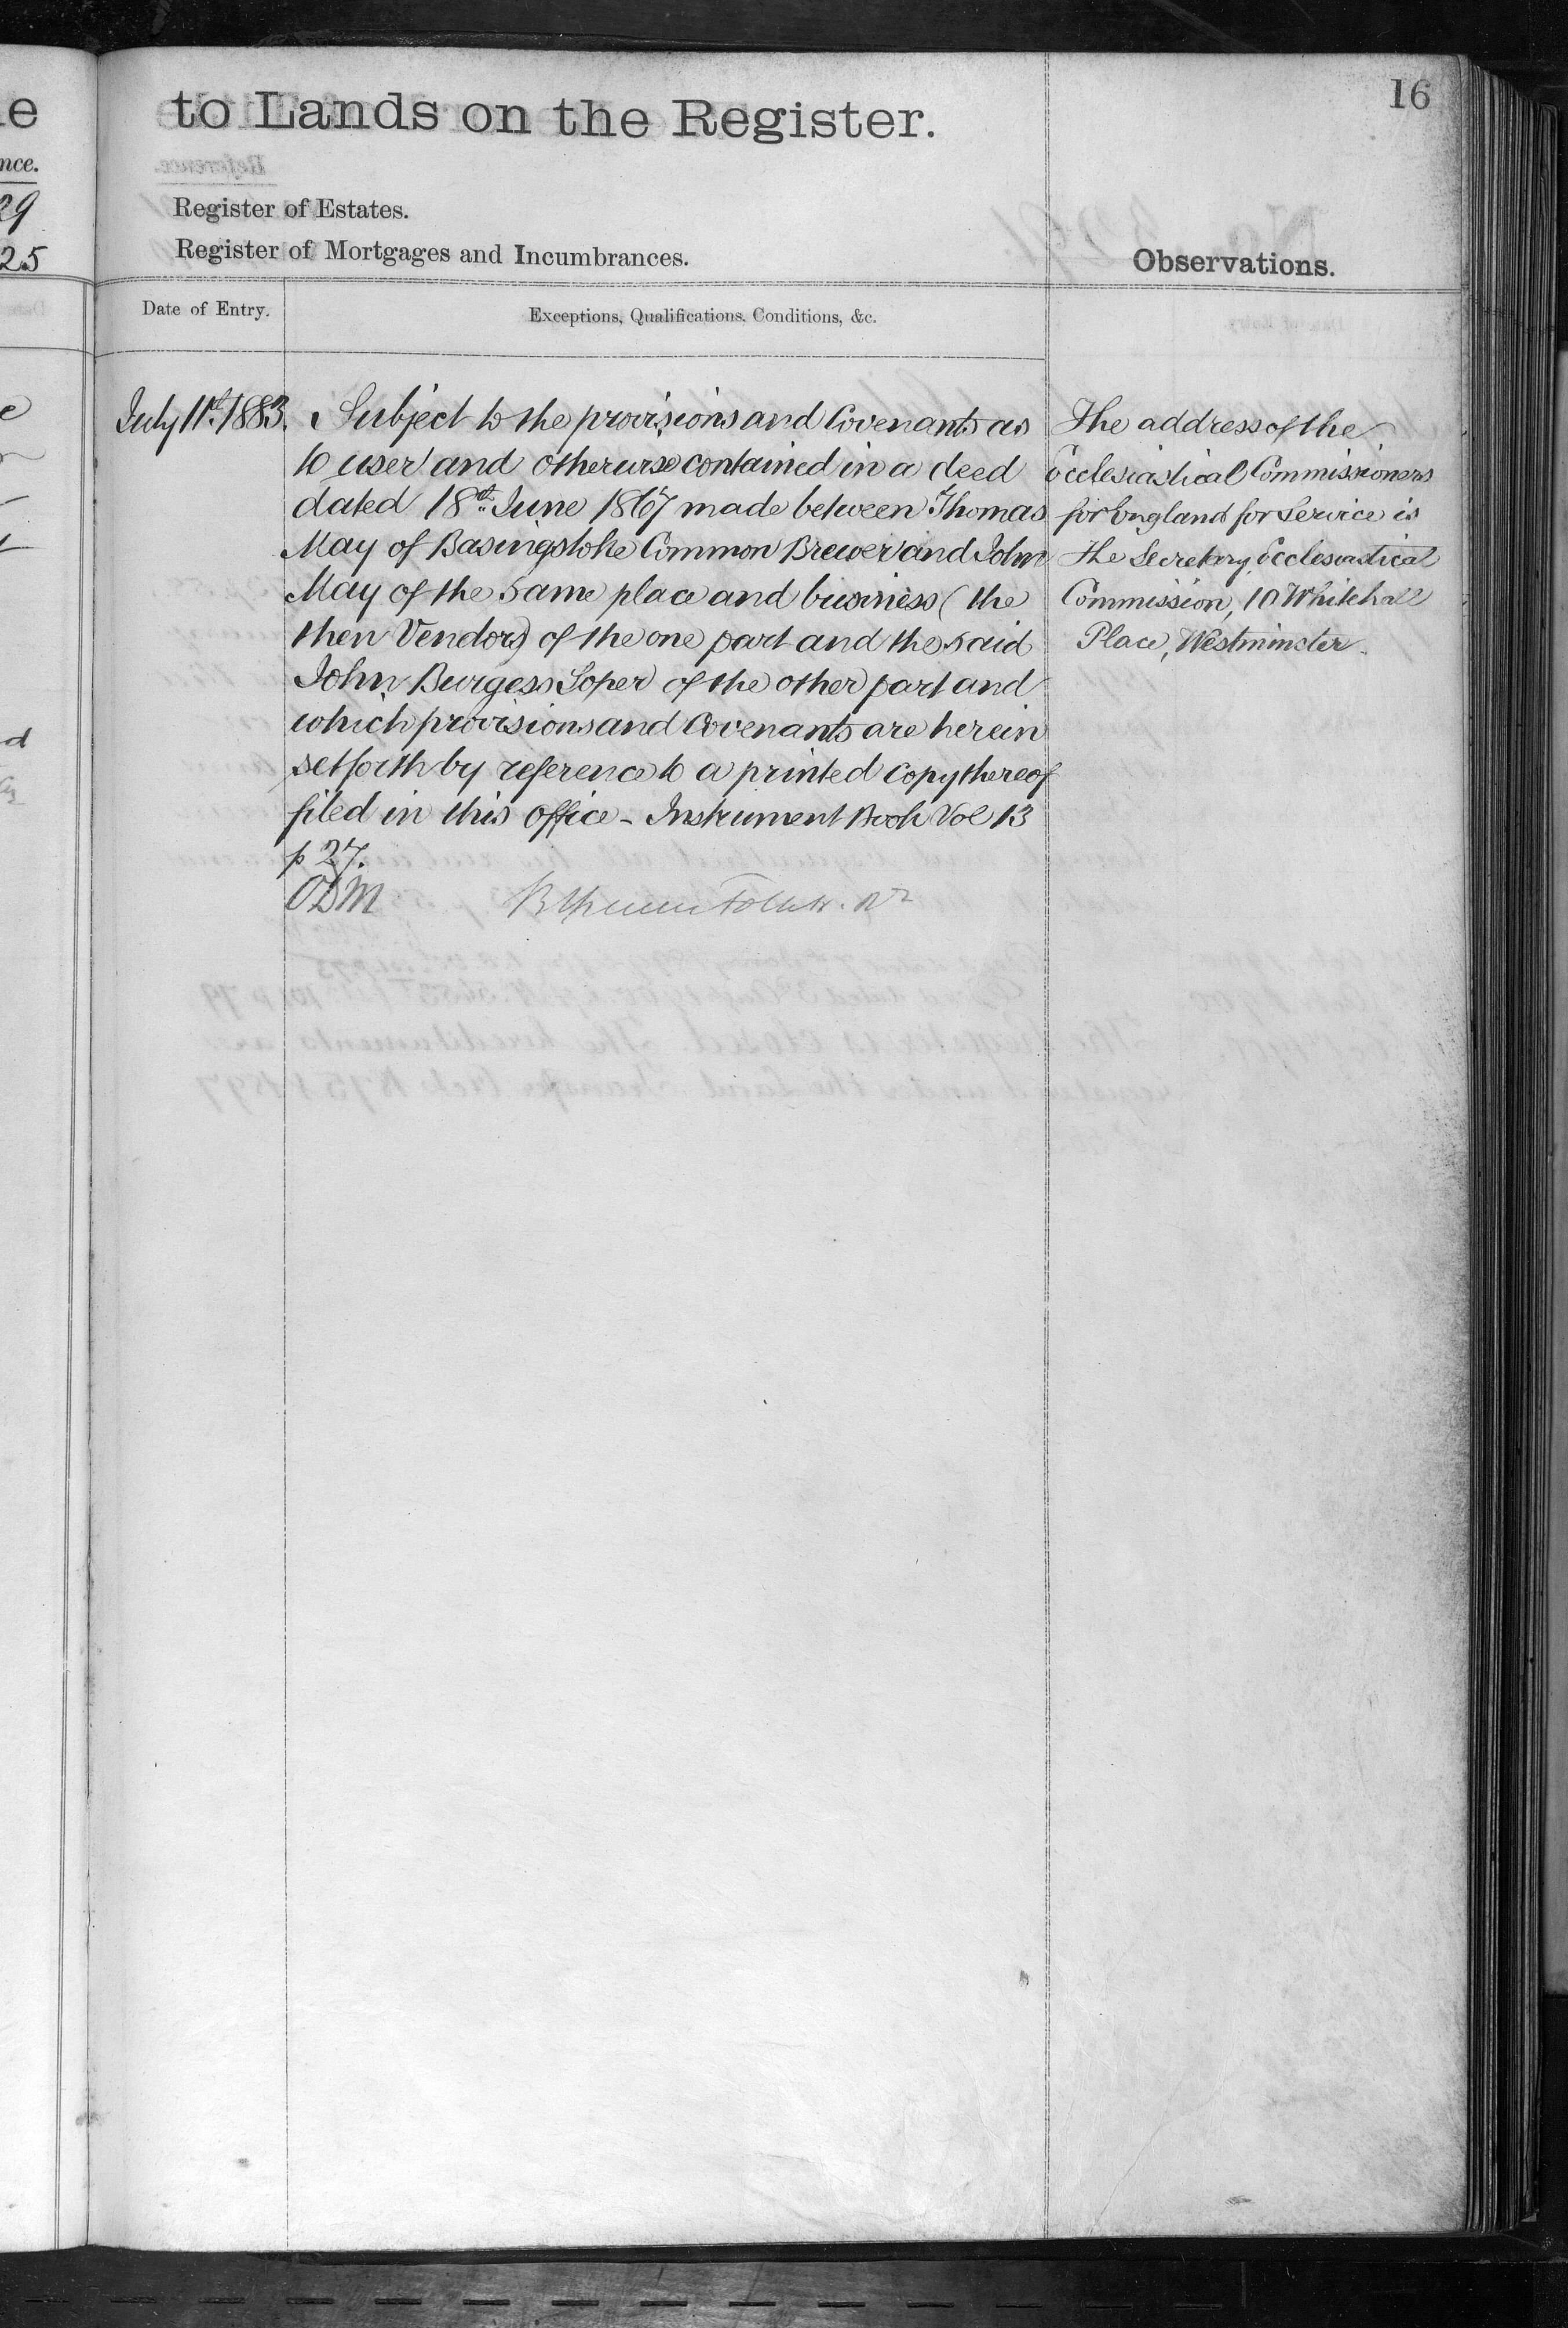 to Lands on the Register.
16
Register of Estates.
Register of Mortgages and Incumbrances.
Observations.
Date of Entry.
Exceptions, Qualifications, Conditions, &c.
July 11th 1883. Subject to the provisions and Covenants as
to user and otherwise contained in a deed
dated 18th June 1867 made between Thomas
May of Basingstoke Common Brewer and John
May of the same place and business (the
then Vendors) of the one part and the said
John Burgess Soper of the other part and
which provisions and Covenants are herein
set forth by reference to a printed copy thereof
filed in this office - Instrument Book Vol 13
p 27.
The address of the
Ecclesiastical Commissioners
for England for Service is
The Secretary, Ecclesiastical
Commission, 10 Whitehall
Place, Westminster.
nce.
29
25